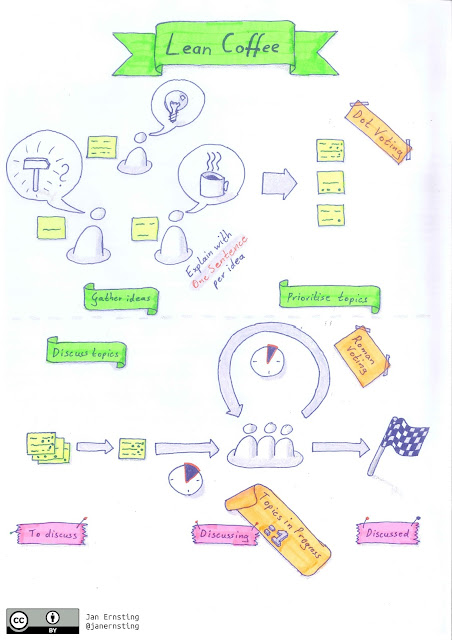 Lean Coffee
Dot Voting
?
Explain with
One Sentence
per idea
Gather ideas
Prioritise topics
Discuss topics
Roman
Voting
Topics in Progress
:1
To discuss
Discussing
Discussed
cc
BY
Jan Ernsting
@janernsting